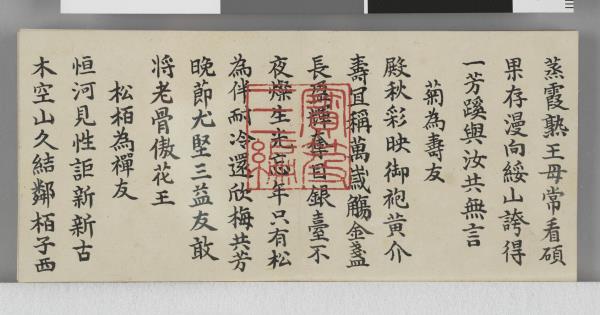 蒸霞熟王母常看碩
果存漫向綏山誇得
一芳蹊與汝共無言
菊為壽友
殿秋彩映御袍黃介
壽宜稱萬歲觴金盞
長盈輝奪目銀臺不
夜燦生光忘年只有松
為伴耐冷還欣梅共芳
晚節尤堅三益友敢
將老骨傲花王
松栢為禪友
恒河見性詎新新古
木空山久結鄰栢子西